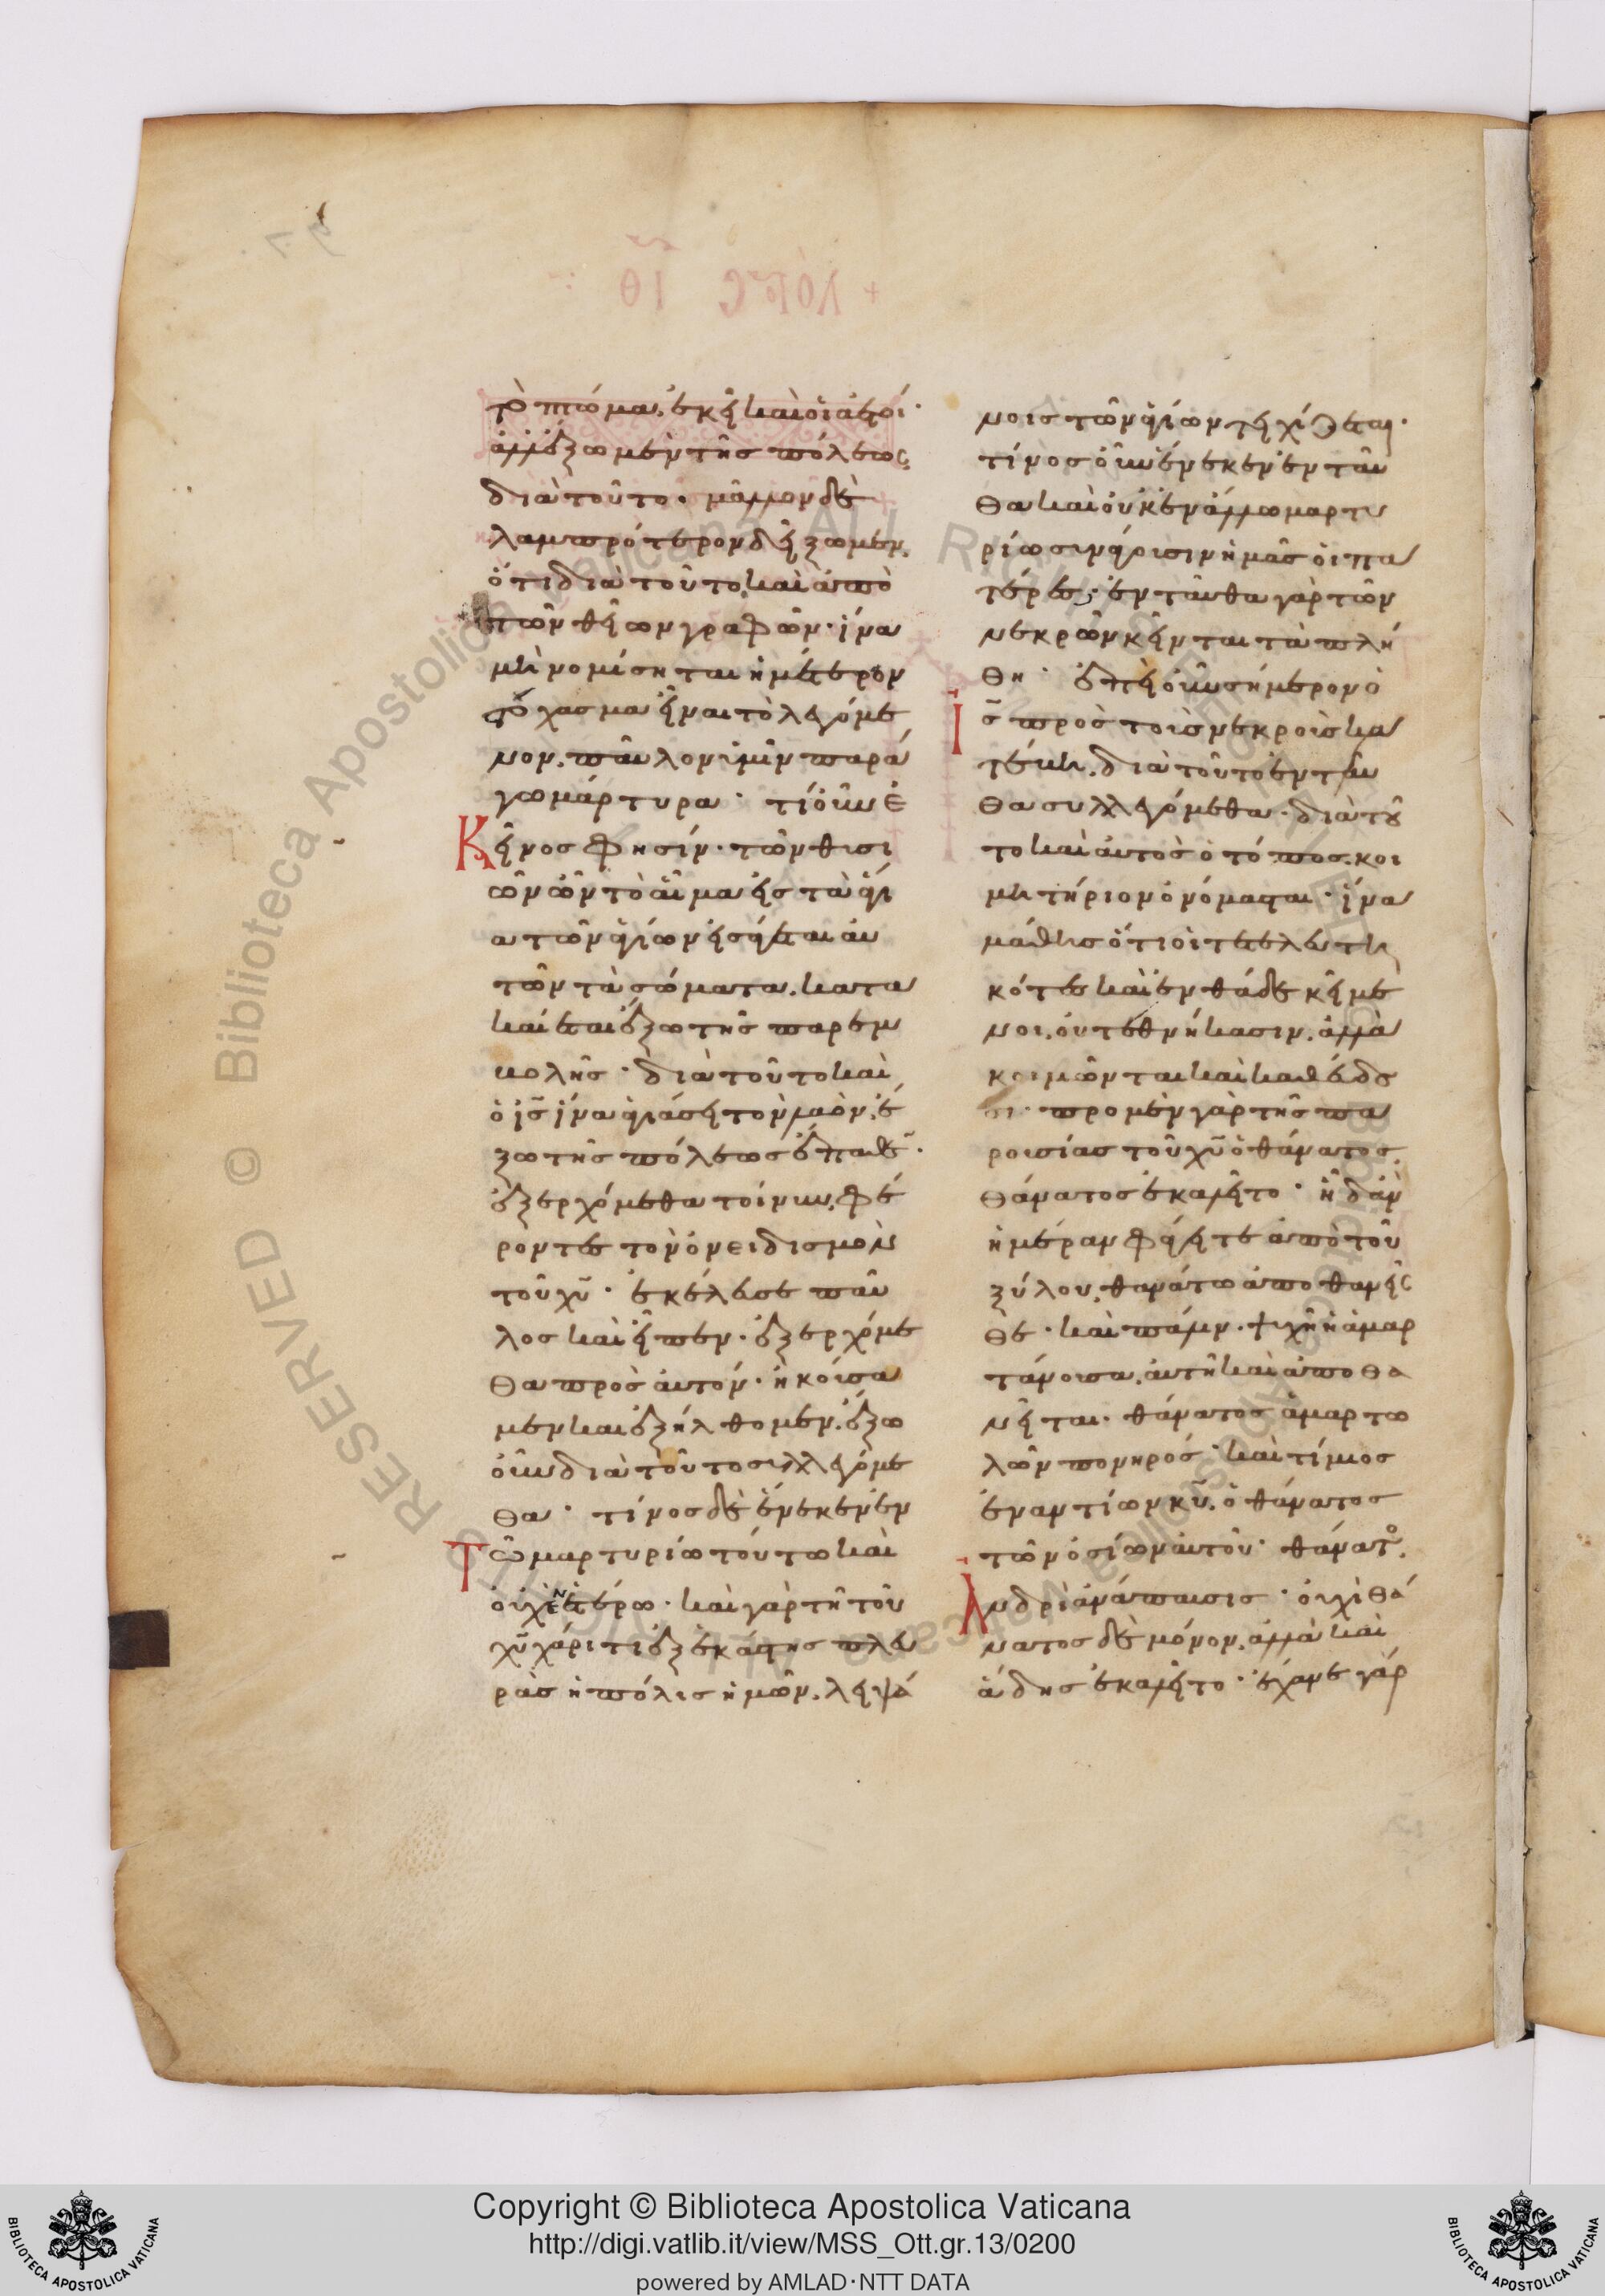 τὸ πτόμα. ἐκεῖ καὶ οἱ ἀετοί·
ἀλλ' ἔξω μὲν τῆς πόλεως
διὰ τοῦτο. μᾶλλον δὲ
λαμπρότερον δείξωμεν.
ὅτι διὰ τοῦτο, καὶ ἀπὸ
τῶν θείων γραφῶν· ἵνα
μὴ νομίσηται ἡμέτερον
στόχασμα εἶναι τὸ λεγόμε
νον. παῦλον ὑμῖν παρά
γω μάρτυρα· τί οὖν ἐ
Κεῖνος φησίν· τῶν θυσι
ῶν ὧν τὸ αἷμα εἰς τὰ ἅγι
α τῶν ἁγίων εἰσήγεται αὐ
τῶν τὰ σώματα. κατα
καίεται ἔξω τῆς παρεμ
βολῆς· διὰ τοῦτο καὶ
ὁ ι̅ς̅ ἵνα ἁγιάσει τὸν λαὸν. ἔ
ξω τῆς πόλεως ἔπαθε·
ἐξερχόμεθα τοίνυν. φέ
ροντες τὸν ὀνειδισμὸν
τοῦ χ̅υ̅· ἐκέλευσε παῦ
λος καὶ εἶπεν· ἐξερχόμε
θα πρὸς αὐτόν· ἠκούσα
μεν καὶ ἐξήλθομεν. ἔξω
οὖν διὰ τοῦτο συλλεγόμε
θα· τίνος δὲ ἕνεκεν ἐν
Τῶ μαρτυρίω τούτω καὶ
οὐχ ἐν ἑτέρω· καὶ γὰρ τῆ τοῦ
χ̅υ̅ χάριτι ἐξ ἑκάστης πλευ
ρὰς ἡ πόλις ἡμῶν. λειψά
νοις τῶν ἁγίων τειχίζεται·
τίνος οὖν ἕνεκεν ἐνταῦ
θα καὶ οὐκ ἐν ἄλλω μαρτυ
ρίω συνήγουσιν ἡμᾶς οἱ πα
τέρες· ἐνταῦθα γὰρ τῶν
νεκρῶν κεῖνται τὰ πλή
θη· ἐπεὶ οὖν σήμερον ὁ
Ι̅ς̅ πρὸς τοὺς νεκροὺς κα
τέβη. διὰ τοῦτο ἐνταῦ
θα συλλεγόμεθα. διὰ τοῦ
το καὶ αὐτὸς ὁ τόπος. κοι
μητήριον ὀνόμασται· ἵνα
μάθης ὅτι οἱ τετελευτη
κότες καὶ ἐνθάδε κείμε
νοι. οὐ τεθνήκασιν. ἀλλὰ
κοιμῶνται καὶ καθεύδου
σι· προ μὲν γὰρ τῆς πα
ρουσίας τοῦ χ̅υ̅ ὁ θάνατος.
θάνατος ἐκαλεῖτο· ἧ δἂν
ἡμέραν φάγειτε ἀπὸ τοῦ
ξύλου. θανάτω ἀποθανεῖς
θε· καὶ πάλιν· ψυχῆ ἡ ἁμαρ
τάνουσα. αὐτῆ καὶ ἀποθα
νεῖται· θάνατος ἁμαρτω
λῶν πονηρός· καὶ τίμιος
ἐναντίων κ̅υ̅. ὁ θάνατος
τῶν ὁσίων αὐτοῦ· θάνατος.
Ανδρὶ ἀνάπαυσις· οὐχὶ θά
νατος δὲ μόνον. ἀλλὰ καὶ
ἅδης ἐκαλεῖτο· ἔχανε γάρ
Copyright © Biblioteca Apostolica Vaticana
http://digi.vatlib.it/view/MSS_Ott.gr.13/0200
powered by AMLAD·NTT DATA